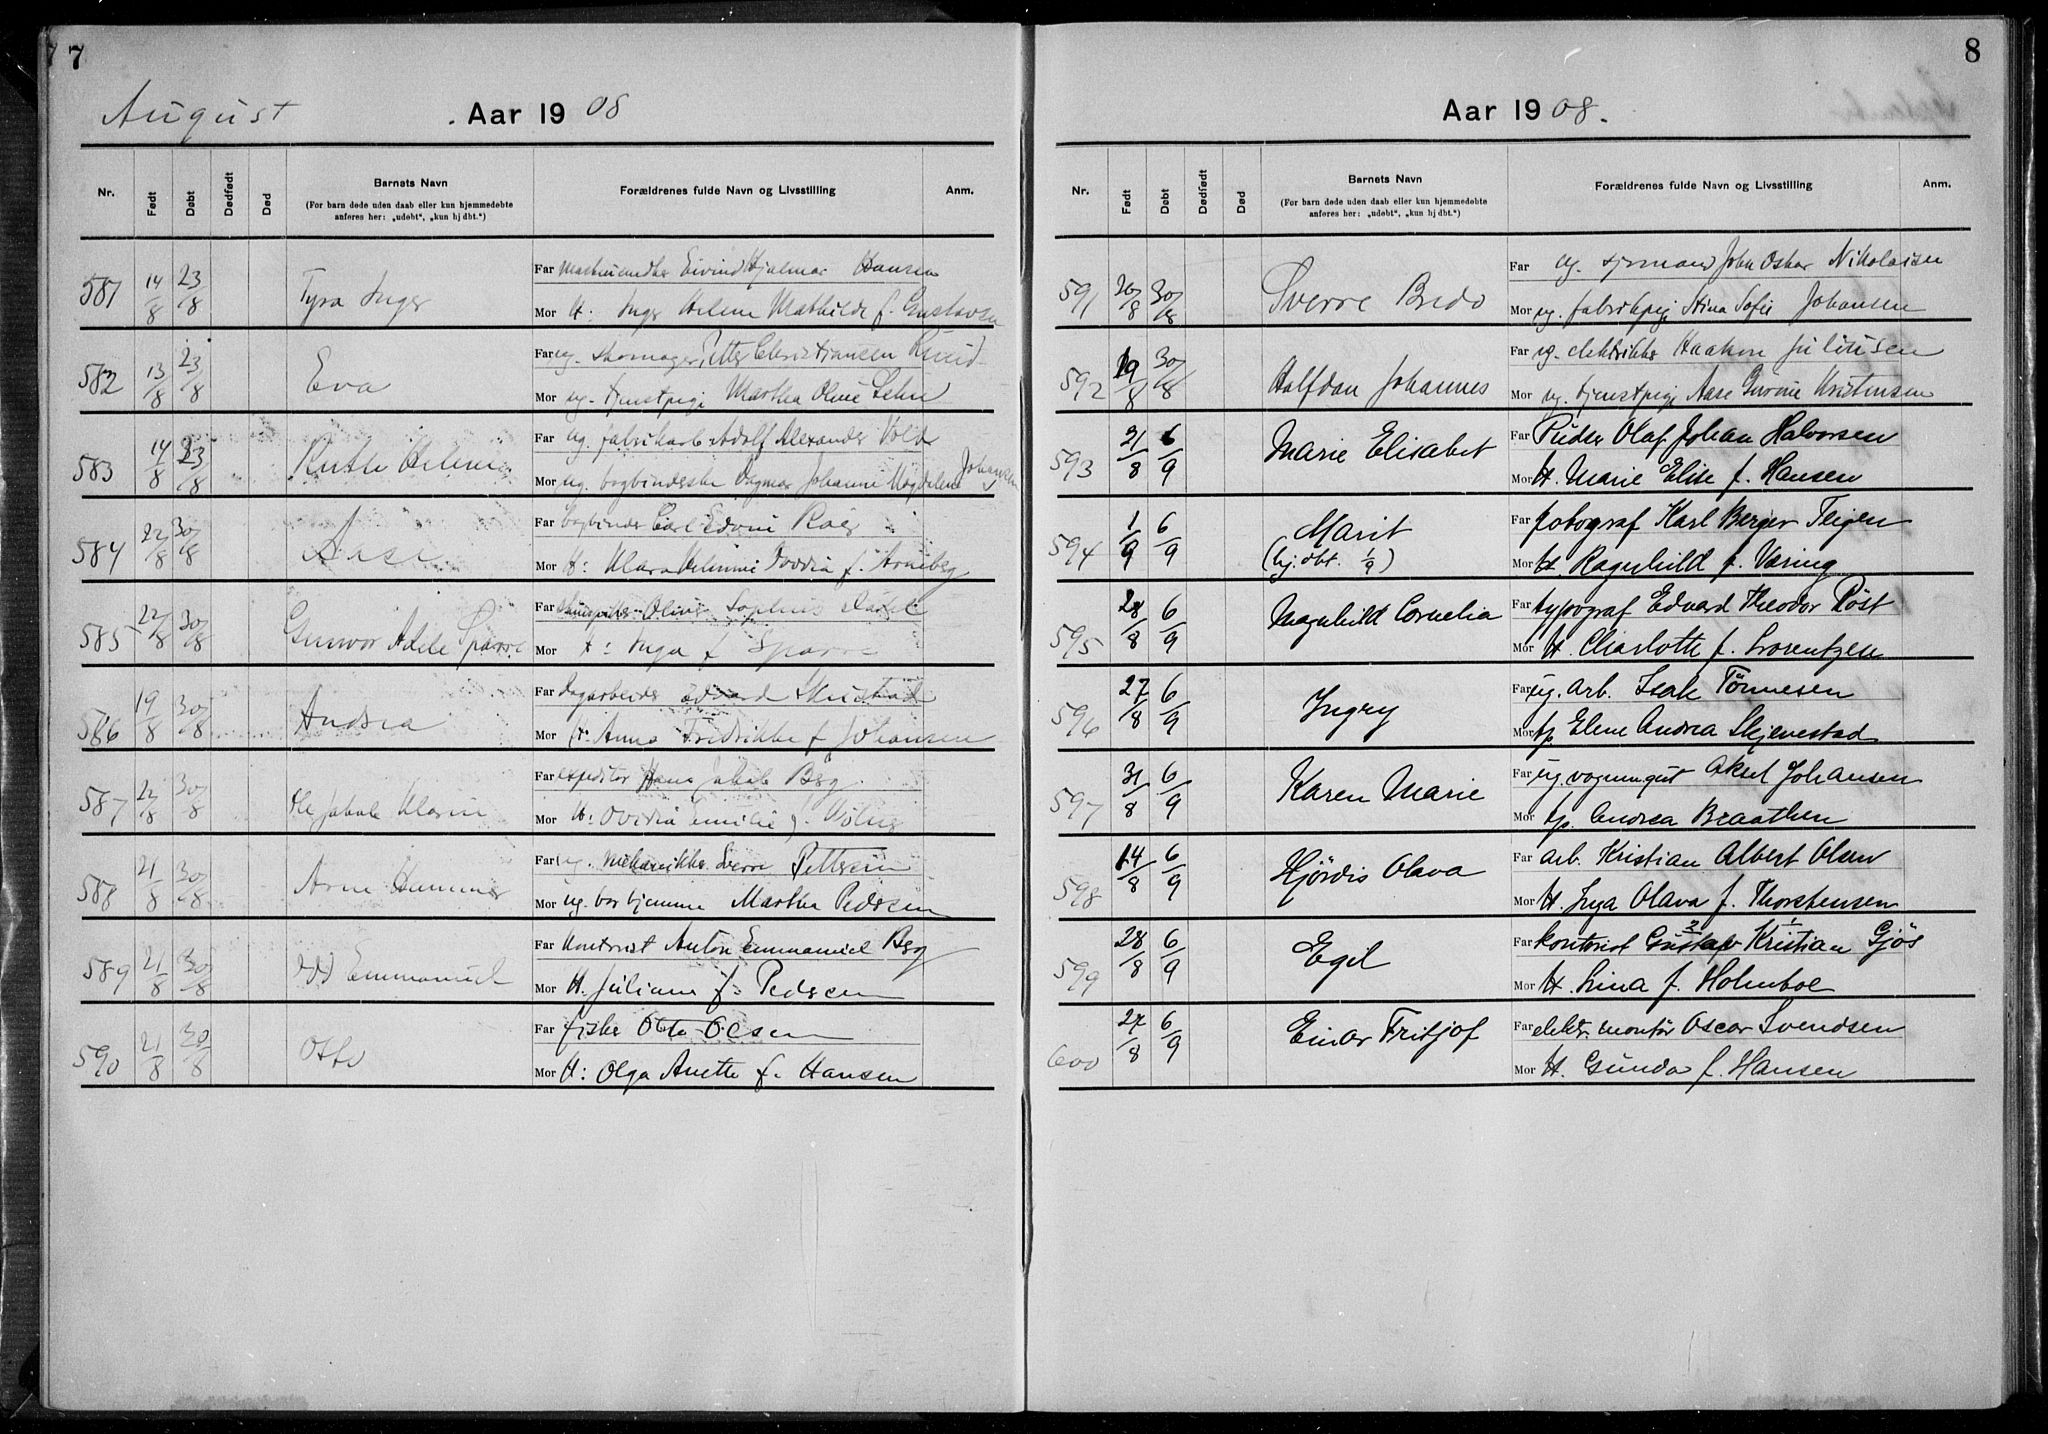 7
August
Aar 1908
Nr. Født Døbt Dødfødt Død Barnets Navn Forældrenes fulde Navn og Livsstilling Anm.
(For barn døde uden daab eller kun hjemmedøbte
anføres her: „udøbt“, „kun hj dbt.“)
581 14/8 23/8 Tyra Inger
Far Eivind Hjalmar Hansen
Mor H: Inger Helene Mathilde f. Gustavsen
582 13/8 23/8 Eva
Far ug. skomager Petter Christiansen
Mor ug. tjenstpige Martha Oline Lehn
583 14/8 23/8 Ruth Helene
Far ug. fabrikarb. Adolf Alexander Vold
Mor ug. Dagmar Johanne Magdalene Johansen
584 22/8 30/8 Aase
Far bogbinder Carl Edvin
Mor H: Klara f. Arneberg
585 22/8 30/8 Gunvor Adele Sparre
Far Oliver Sophus
Mor H: Inga f. Sparre
586 19/8 30/8 Andrea
Far Dagarbeider Edvard
Mor H: Anna Fredrikke f. Johansen
587 22/8 30/8 Ole Jakob
Far expeditør Hans Jakob Berg
Mor H: Ovidia Emilie f.
588 21/8 30/8 Arne
Far ug. mekaniker Sverre Pettersen
Mor ug. Martha Pedersen
589 21/8 30/8 Emmanuel
Far kontorist Anton Emmanuel Berg
Mor H. Juliane f. Pedersen
590 21/8 30/8 Otto
Far fisker Otto Olsen
Mor H: Olga Anette f. Hansen
8
Aar 1908.
Nr. Født Døbt Dødfødt Død Barnets Navn Forældrenes fulde Navn og Livsstilling Anm.
(For barn døde uden daab eller kun hjemmedøbte
anføres her: „udøbt“, „kun hj dbt.“)
591 20/8 30/8 Sverre Bredo
Far ug. sjømand John Oskar Nikolaisen
Mor ug. fabrikpige Stina Sofie Johansen
592 19/8 30/8 Halfdan Johannes
Far ug. elektriker Haakon Juliusen
Mor ug. tjenstpige Aase Kristensen
593 21/8 6/9 Marie Elisabet
Far Pudser Olaf Johan Halvorsen
Mor H. Marie Elise f. Hansen
594 1/9 6/9 Marit
(hj. dbt. 1/9)
Far fotograf Karl Berger Teigen
Mor H. Ragnhild f. Væring
595 28/8 6/9 Magnhild Cornelia
Far typograf Edvard Theodor Røst
Mor H. Charlotte f. Lorentzen
596 27/8 6/9 Ingry
Far ug. arb. Isak Tönnesen
Mor tp. Elene Andrea Skjevestad
597 31/8 6/9 Karen Marie
Far ug. vognmgut Aksel Johansen
Mor tp. Andrea Braathen
598 14/8 6/9 Hjördis Olava
Far arb. Kristian Albert Olsen
Mor H. Inga Olava f. Thorstensen
599 28/8 6/9 Egil
Far kontorist Gustav 2 Kristian 1 Gjös
Mor H. Lina f. Holmboe
600 27/8 6/9 Einar Fritjof
Far elektr. montör Oscar Svendsen
Mor H. Gunda f. Hansen